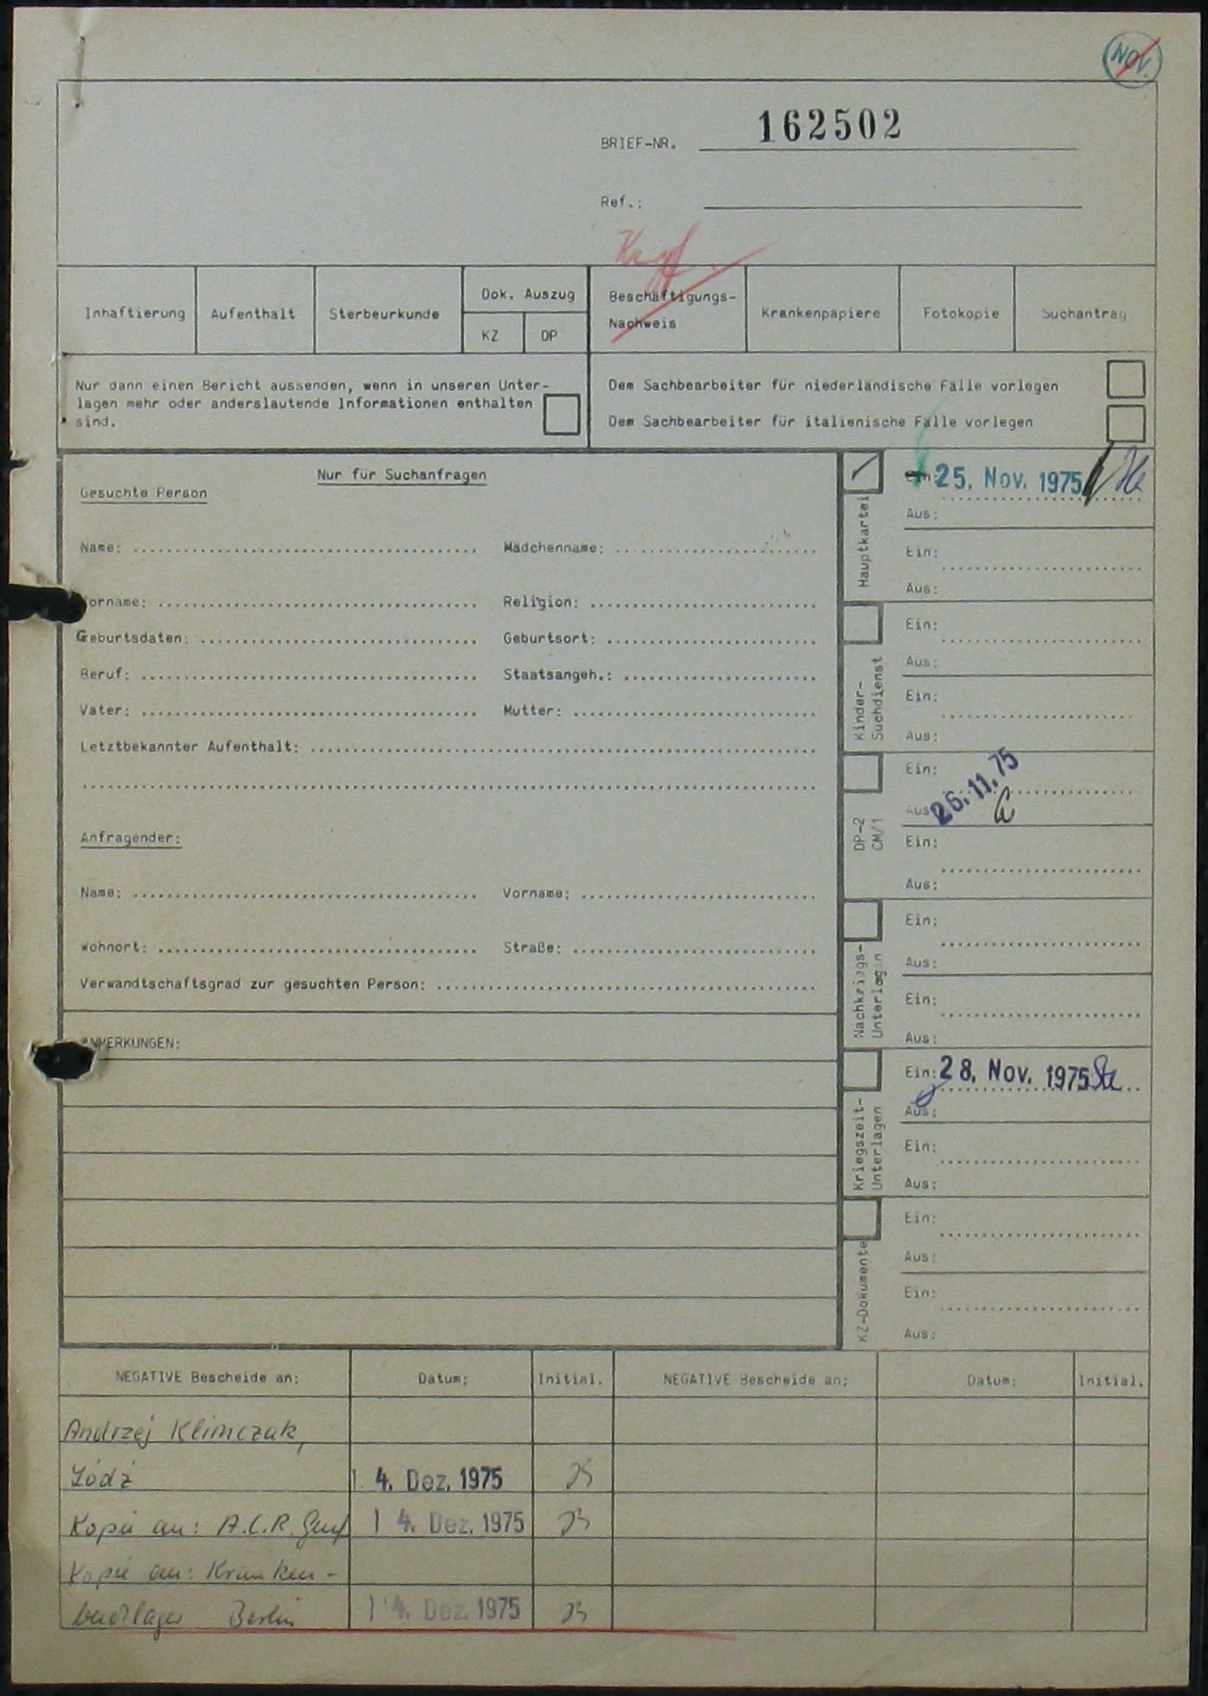 Nov.
BRIEF-NR. 162502
Ref.:
Inhaftierung
Aufenthalt
Sterbeurkunde
Dok. Auszug
KZ
DP
Beschäftigungs-
Nachweis
Krankenpapiere
Fotokopie
Suchantrag
Nur dann einen Bericht aussenden, wenn in unseren Unter-
lagen mehr oder anderslautende Informationen enthalten
sind.
Dem Sachbearbeiter für niederländische Fälle vorlegen
Dem Sachbearbeiter für italienische Fälle vorlegen
Nur für Suchanfragen
Gesuchte Person
Name: Mädchenname:
Vorname: Religion:
Geburtsdaten: Geburtsort:
Beruf: Staatsangeh.:
Vater: Mutter:
Letztbekannter Aufenthalt:
Anfragender:
Name: Vorname:
Wohnort: Straße:
Verwandtschaftsgrad zur gesuchten Person:
ANMERKUNGEN:
Hauptkartei
Ein: 25. Nov. 1975
Aus:
Ein:
Aus:
Kinder-
Suchdienst
Ein:
Aus:
Ein:
Aus:
DP-2
CM/1
Ein:
Aus: 26.11.75
Ein:
Aus:
Nachkriegs-
Unterlagen
Ein:
Aus:
Ein:
Aus:
Kriegszeit-
Unterlagen
Ein: 28. Nov. 1975
Aus:
Ein:
Aus:
KZ-Dokumente
Ein:
Aus:
Ein:
Aus:
NEGATIVE Bescheide an: Datum: Initial. NEGATIVE Bescheide an: Datum: Initial.
Andrzej Klimczak,
Łódź 4. Dez. 1975
Kopie an: A.C.R. Genf 4. Dez. 1975
Kopie an: Kranken-
buchlager Berlin 4. Dez. 1975